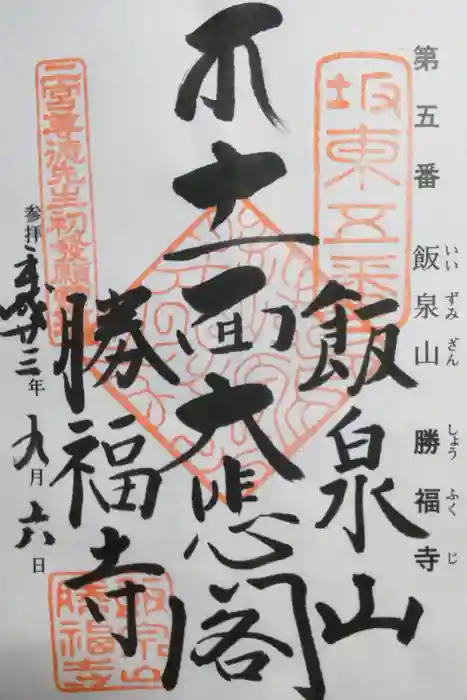 第五番 飯泉山 勝福寺
いいずみざん しょうふくじ
坂東五番
飯泉山
十一面大悲閣
勝福寺
飯泉山
勝福寺
二宮尊徳先生初發願
参拝 平成廿三年九月六日